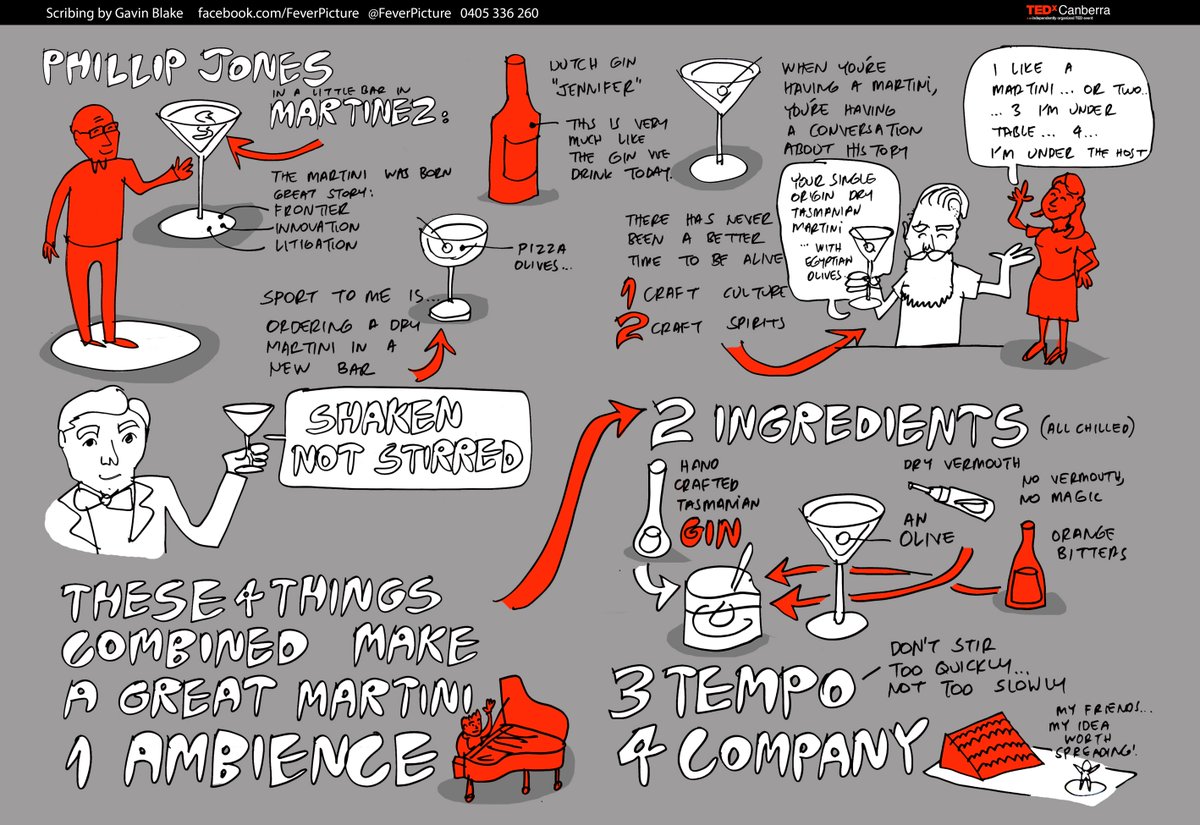 Scribing by Gavin Blake facebook.com/FeverPicture @FeverPicture 0405 336 260
TEDxCanberra
x=independently organized TED event
PHILLIP JONES
IN A LITTLE BAR IN
MARTINEZ:
THE MARTINI WAS BORN
GREAT STORY:
FRONTIER
INNOVATION
LITIGATION
DUTCH GIN
"JENNIFER"
THIS IS VERY
MUCH LIKE
THE GIN WE
DRINK TODAY.
PIZZA
OLIVES...
SPORT TO ME IS...
ORDERING A DRY
MARTINI IN A
NEW BAR
WHEN YOU'RE
HAVING A MARTINI,
YOU'RE HAVING
A CONVERSATION
ABOUT HISTORY
I LIKE A
MARTINI... OR TWO..
... 3 I'M UNDER
TABLE... 4...
I'M UNDER THE HOST
YOUR SINGLE
ORIGIN DRY
TASMANIAN
MARTINI
... WITH
EGYPTIAN
OLIVES
THERE HAS NEVER
BEEN A BETTER
TIME TO BE ALIVE
1 CRAFT CULTURE
2 CRAFT SPIRITS
SHAKEN
NOT STIRRED
THESE 4 THINGS
COMBINED MAKE
A GREAT MARTINI
1 AMBIENCE
2 INGREDIENTS (ALL CHILLED)
HAND
CRAFTED
TASMANIAN
GIN
AN
OLIVE
DRY VERMOUTH
NO VERMOUTH,
NO MAGIC
ORANGE
BITTERS
3 TEMPO
DON'T STIR
TOO QUICKLY...
NOT TOO SLOWLY
4 COMPANY
MY FRIENDS...
MY IDEA
WORTH
SPREADING!